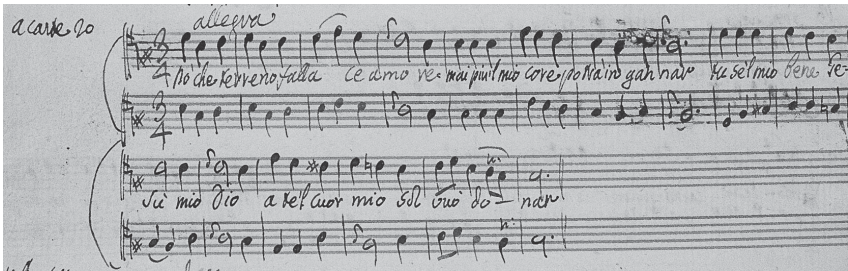 a carte 20
allegra
3 4 No che terreno falla ce amo re mai piu'l mio core potra in gan nar tu sei'l mio bene Je-
3 4
su mio dio a te'l cuor mio sol vuò do- nar